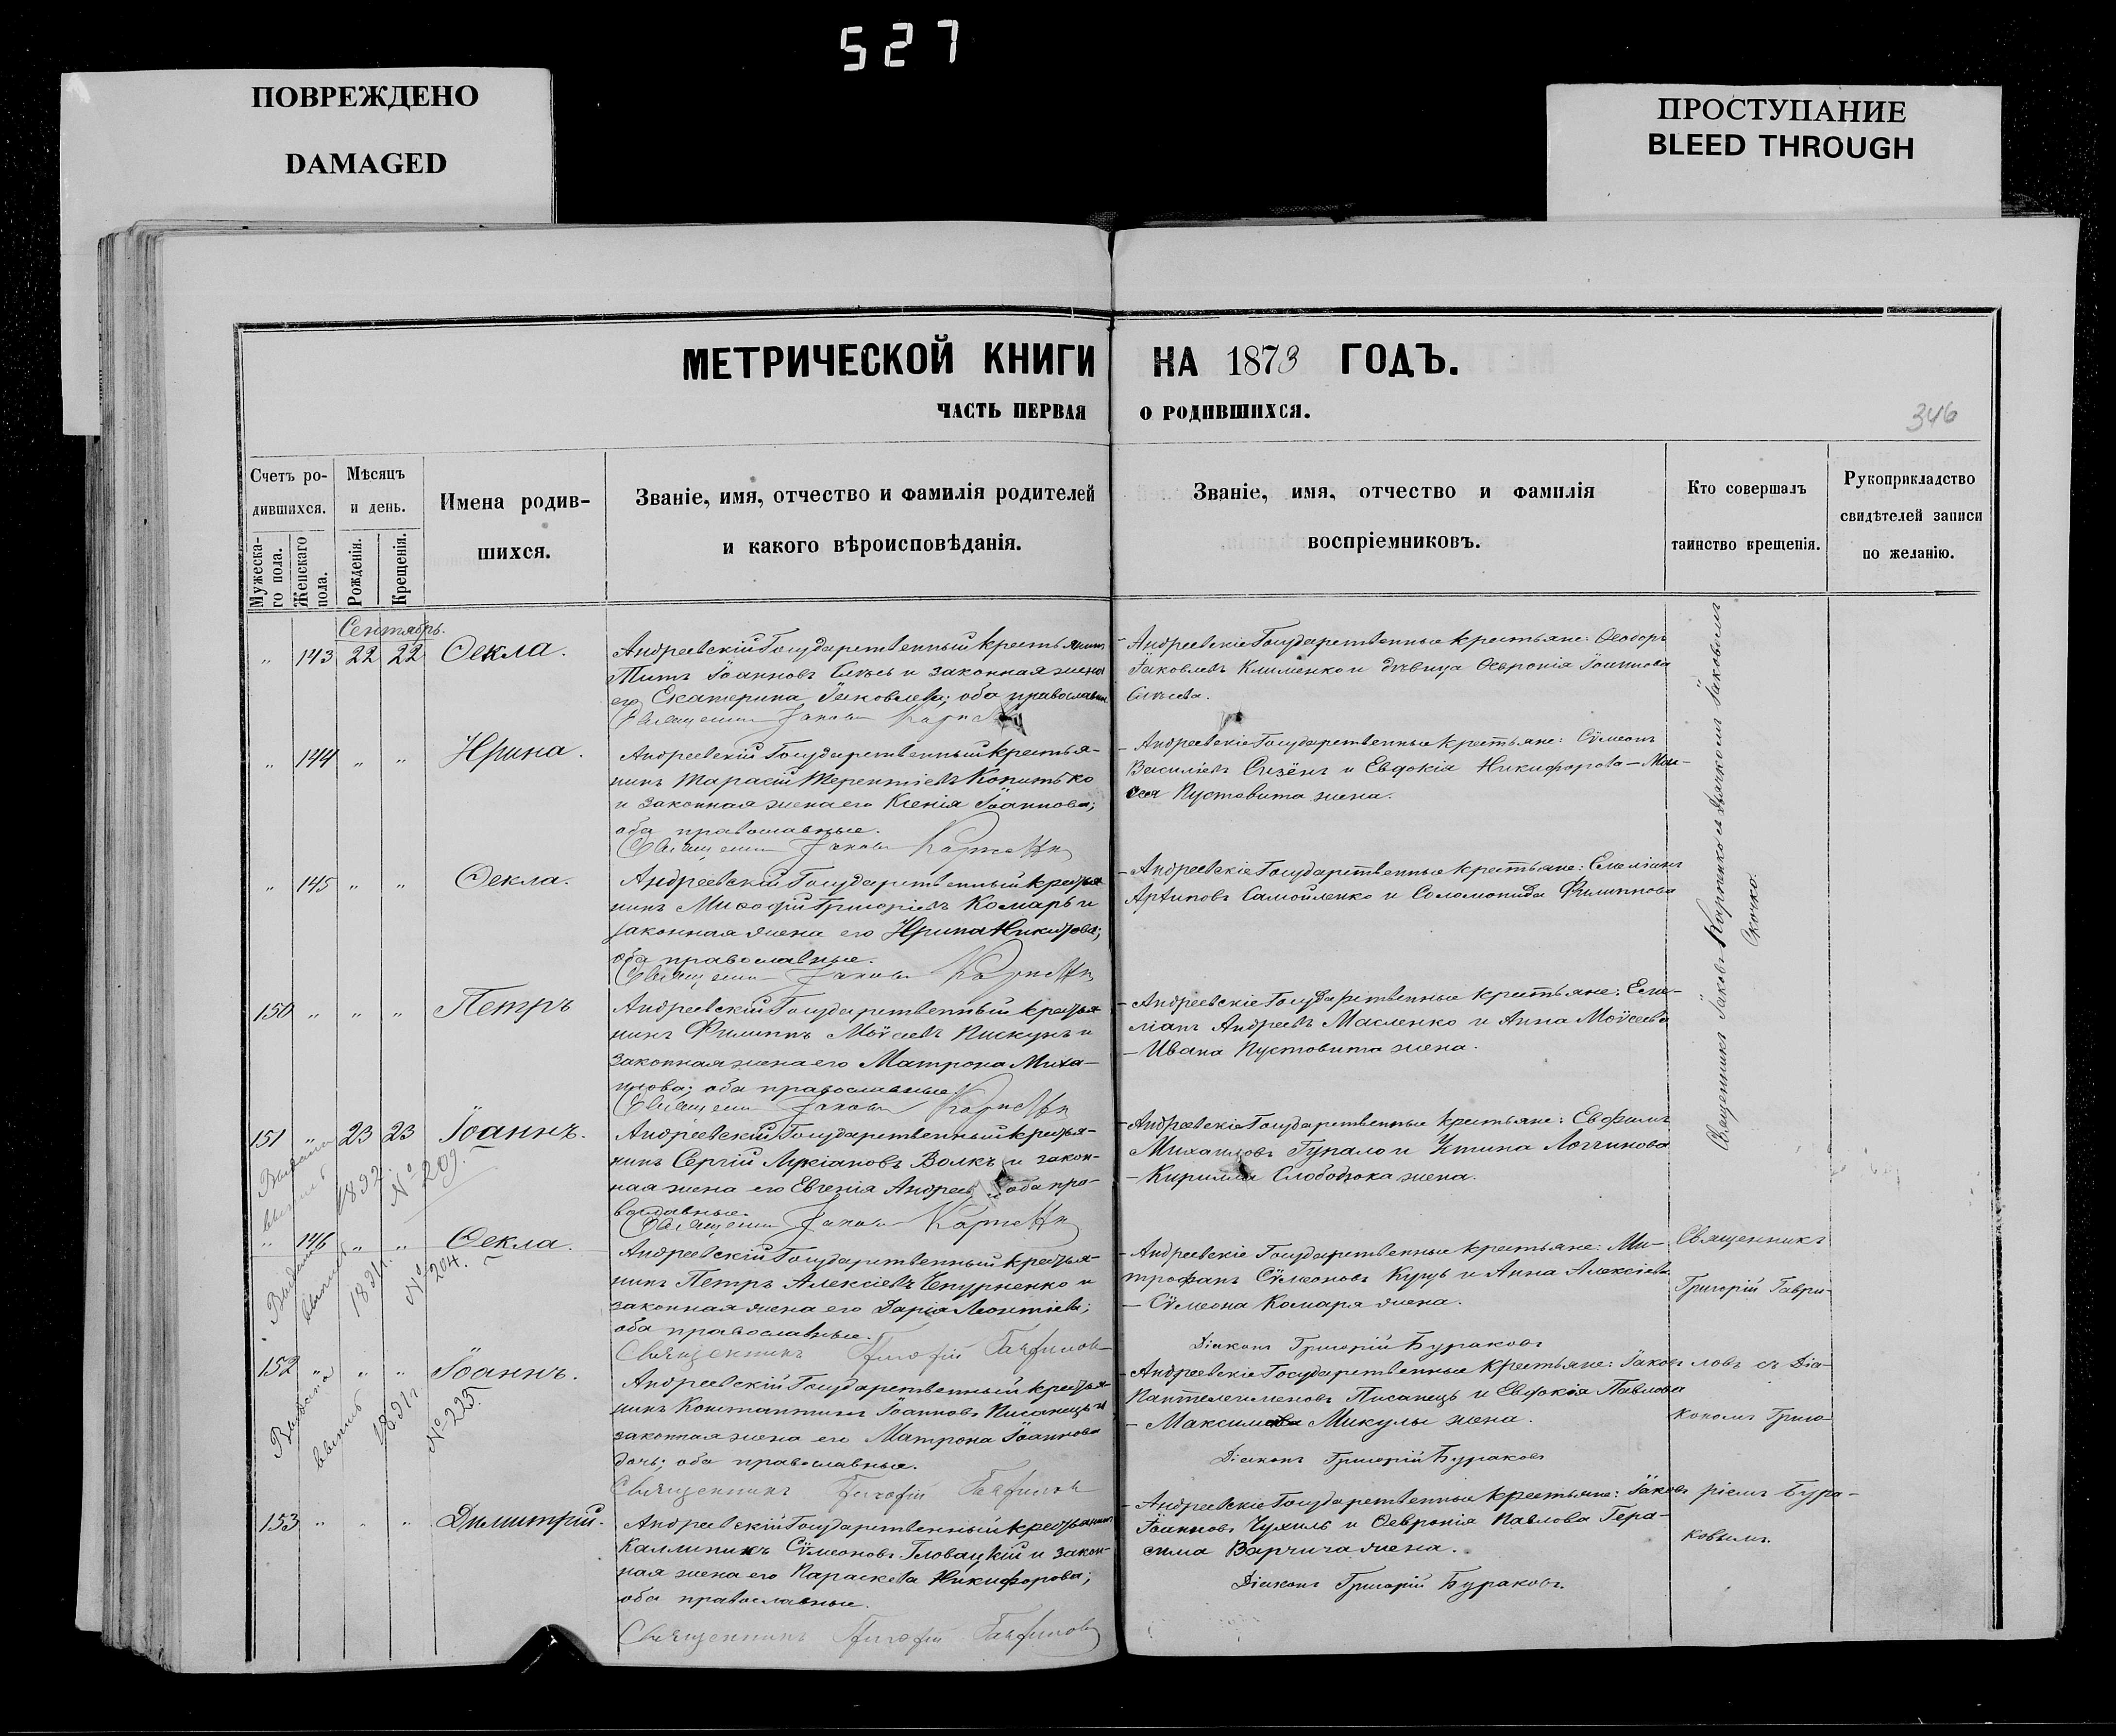 527
ПОВРЕЖДЕНО
DAMAGED
ПРОСТУПАНИЕ
BLEED THROUGH
МЕТРИЧЕСКОЙ КНИГИ НА 1873 ГОДЪ.
ЧАСТЬ ПЕРВАЯ О РОДИВШИХСЯ.
346
Счетъ ро-
дившихся.
Мужеска-
го пола.
Женскаго
пола.
Мѣсяцъ
и день.
Рожденія.
Крещенія.
Имена родив-
шихся.
Званіе, имя, отчество и фамилія родителей
и какого вѣроисповѣданія.
Званіе, имя, отчество и фамилія
воспріемниковъ.
Кто совершалъ
таинство крещенія.
Рукоприкладство
свидѣтелей записи
по желанію.
Сентябрь.
„ 143 22 22 Ѳекла.
Андреевскій Государственный крестьянинъ
Титъ Іоанновъ и законная жена
его Екатерина Іаковлева; оба православные
Священникъ Іаковъ
Андреевскіе Государственные крестьяне: Ѳеодоръ
Іаковлевъ Клименко и дѣвица Ѳевронія Іоаннова
„ 144 „ „ Ирина.
Андреевскій Государственный крестья-
нинъ Тарасій Терентіевъ Копитько
и законная жена его Ксенія Іоаннова;
оба православные.
Священникъ Іаковъ
Андреевскіе Государственные крестьяне: Сѵмеонъ
Василіевъ Сизёнъ и Евдокія Никифорова – Мои-
сея Пустовита жена.
„ 145 „ „ Ѳекла.
Андреевскій Государственный крестья-
нинъ Григоріевъ Комаръ и
законная жена его Ирина
оба православные.
Священникъ Іаковъ
Андреевскіе Государственные крестьяне: Емеліанъ
Самойленко и Соломонида Филиппова
150 „ „ „ Петръ
Андреевскій Государственный крестья-
нинъ Филиппъ Моѵсеевъ Пискунъ и
законная жена его Матрона Миха-
илова; оба православные.
Священникъ Іаковъ
Андреевскіе Государственные крестьяне: Еме-
ліанъ Андреевъ Масленко и Анна Моѵсеева
– Ивана Пустовита жена.
151 „ 23 23 Іоаннъ.
Андреевскій Государственный крестья-
нинъ Сергій Лукіановъ Волкъ и закон-
ная жена его Евгенія Андреев оба пра-
вославные.
Священникъ Іаковъ
Андреевскіе Государственные крестьяне: Евфимъ
Михаиловъ Гупало и Устина Логгинова
– Кирилла Слободюка жена.
1892 № 209.
Священникъ Іаковъ съ дьячкомъ Іаковомъ
Скочко.
„ 146 „ „ Ѳекла.
Андреевскій Государственный крестья-
нинъ Петръ Алексіевъ Чепурненко и
законная жена его Дарія Леонтіева;
оба православные.
Священникъ Григорій Гавриловъ
Андреевскіе Государственные крестьяне: Ми-
трофанъ Сѵмеоновъ Куцъ и Анна Алексіева
– Сѵмеона Комаря жена.
Діаконъ Григорій Бураковъ
1891г. № 204.
152 „ „ „ Іоаннъ.
Андреевскій Государственный крестья-
нинъ Константинъ Іоанновъ Писанецъ и
законная жена его Матрона Іоаннова
дочь; оба православные.
Священникъ Григорій Гавриловъ
Андреевскіе Государственные крестьяне: Іаковъ
Пантелеимоновъ Писанецъ и Евдокія Павлова
– Максима Микулы жена.
Діаконъ Григорій Бураковъ
1891г. № 225.
153 „ „ „ Димитрій.
Андреевскій Государственный крестьянинъ
Каллиникъ Сѵмеоновъ Гловацкій и закон-
ная жена его Параскева Никифорова;
оба православные.
Священникъ Григорій Гавриловъ
Андреевскіе Государственные крестьяне: Іаковъ
Іоанновъ Чухиль и Ѳевронія Павлова Гера-
сима Варчича жена.
Діаконъ Григорій Бураковъ.
Священникъ
Григорій Гаври-
ловъ съ Діа-
кономъ Григо-
ріемъ Бура-
ковымъ.